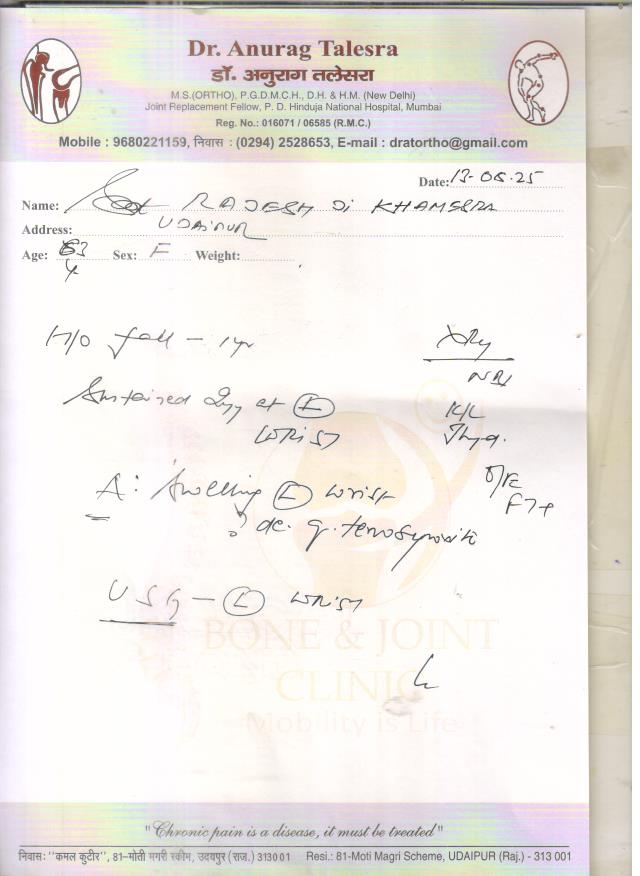 Dr. Anurag Talesra
डॉ. अनुराग तलेसरा
M.S.(ORTHO), P.G.D.M.C.H., D.H. & H.M. (New Delhi)
Joint Replacement Fellow, P. D. Hinduja National Hospital, Mumbai
Reg. No.: 016071 / 06585 (R.M.C.)
Mobile : 9680221159, निवास : (0294) 2528653, E-mail : dratortho@gmail.com
Date: 13.08.25
Name: RAJESH Ji KHAMSRA
Address: UDAIPUR
Age: 63 Sex: F Weight:
H/O fall - 1 yr
Xray
Sustained Inj at (L)
WRIST
K/C
O/E
A: Swelling (L) wrist
? de. q. tenosynovitis
USG - (L) WRIST
BONE & JOINT
CLINIC
Mobility is Life
"Chronic pain is a disease, it must be treated"
निवास: "कमल कुटीर", 81-मोती मगरी स्कीम, उदयपुर (राज.) 313001 Resi.: 81-Moti Magri Scheme, UDAIPUR (Raj.) - 313 001